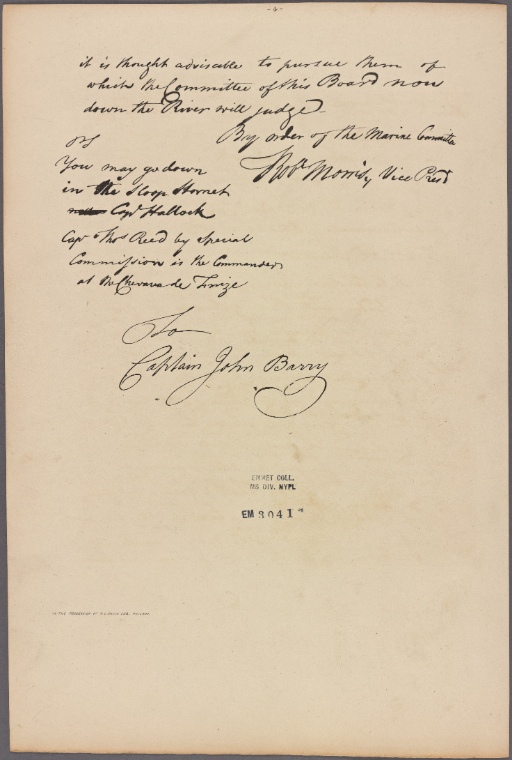 - 4 -
it is thought adviseable to pursue them of
which the Committee of this Board now
down the River will judge
By order of the Marine Committee
Robt Morris, Vice Prest
PS
You may go down
in the Sloop Hornet
Capt Hallock
Capt Thos Read by Special
Commission is the Commander
at the Chevaux de Frize
To
Captain John Barry
EMMET COLL.
MS DIV. NYPL
EM 3041